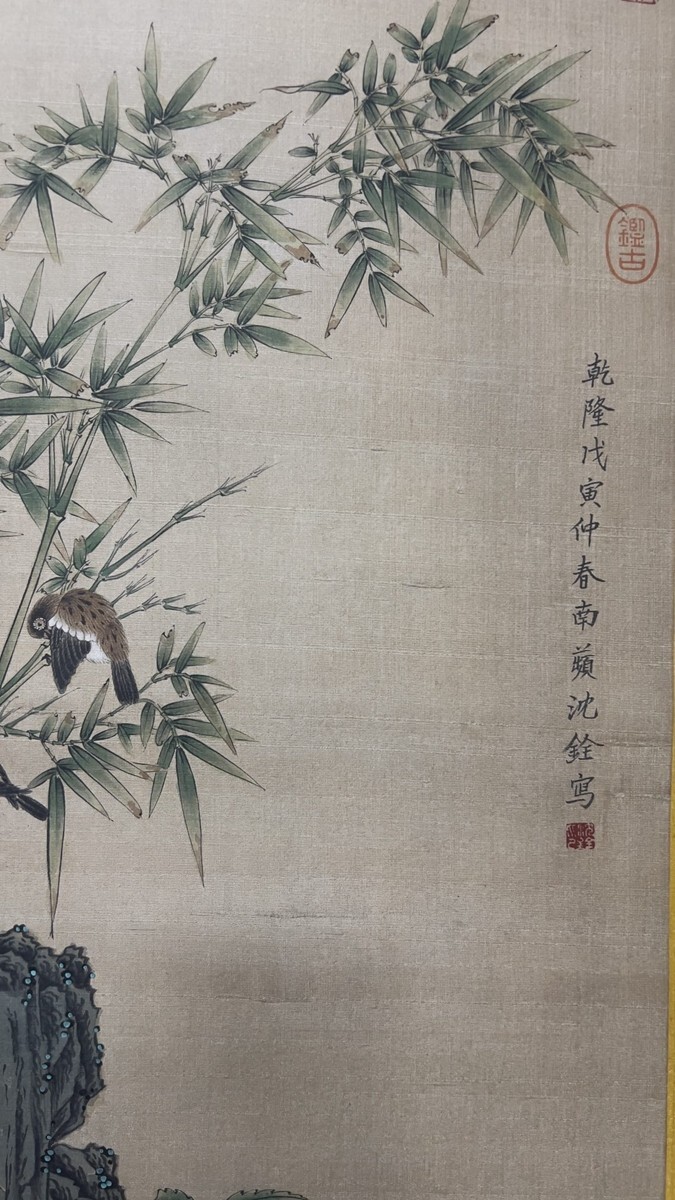 鑑古
乾隆戊寅仲春南蘋沈銓寫